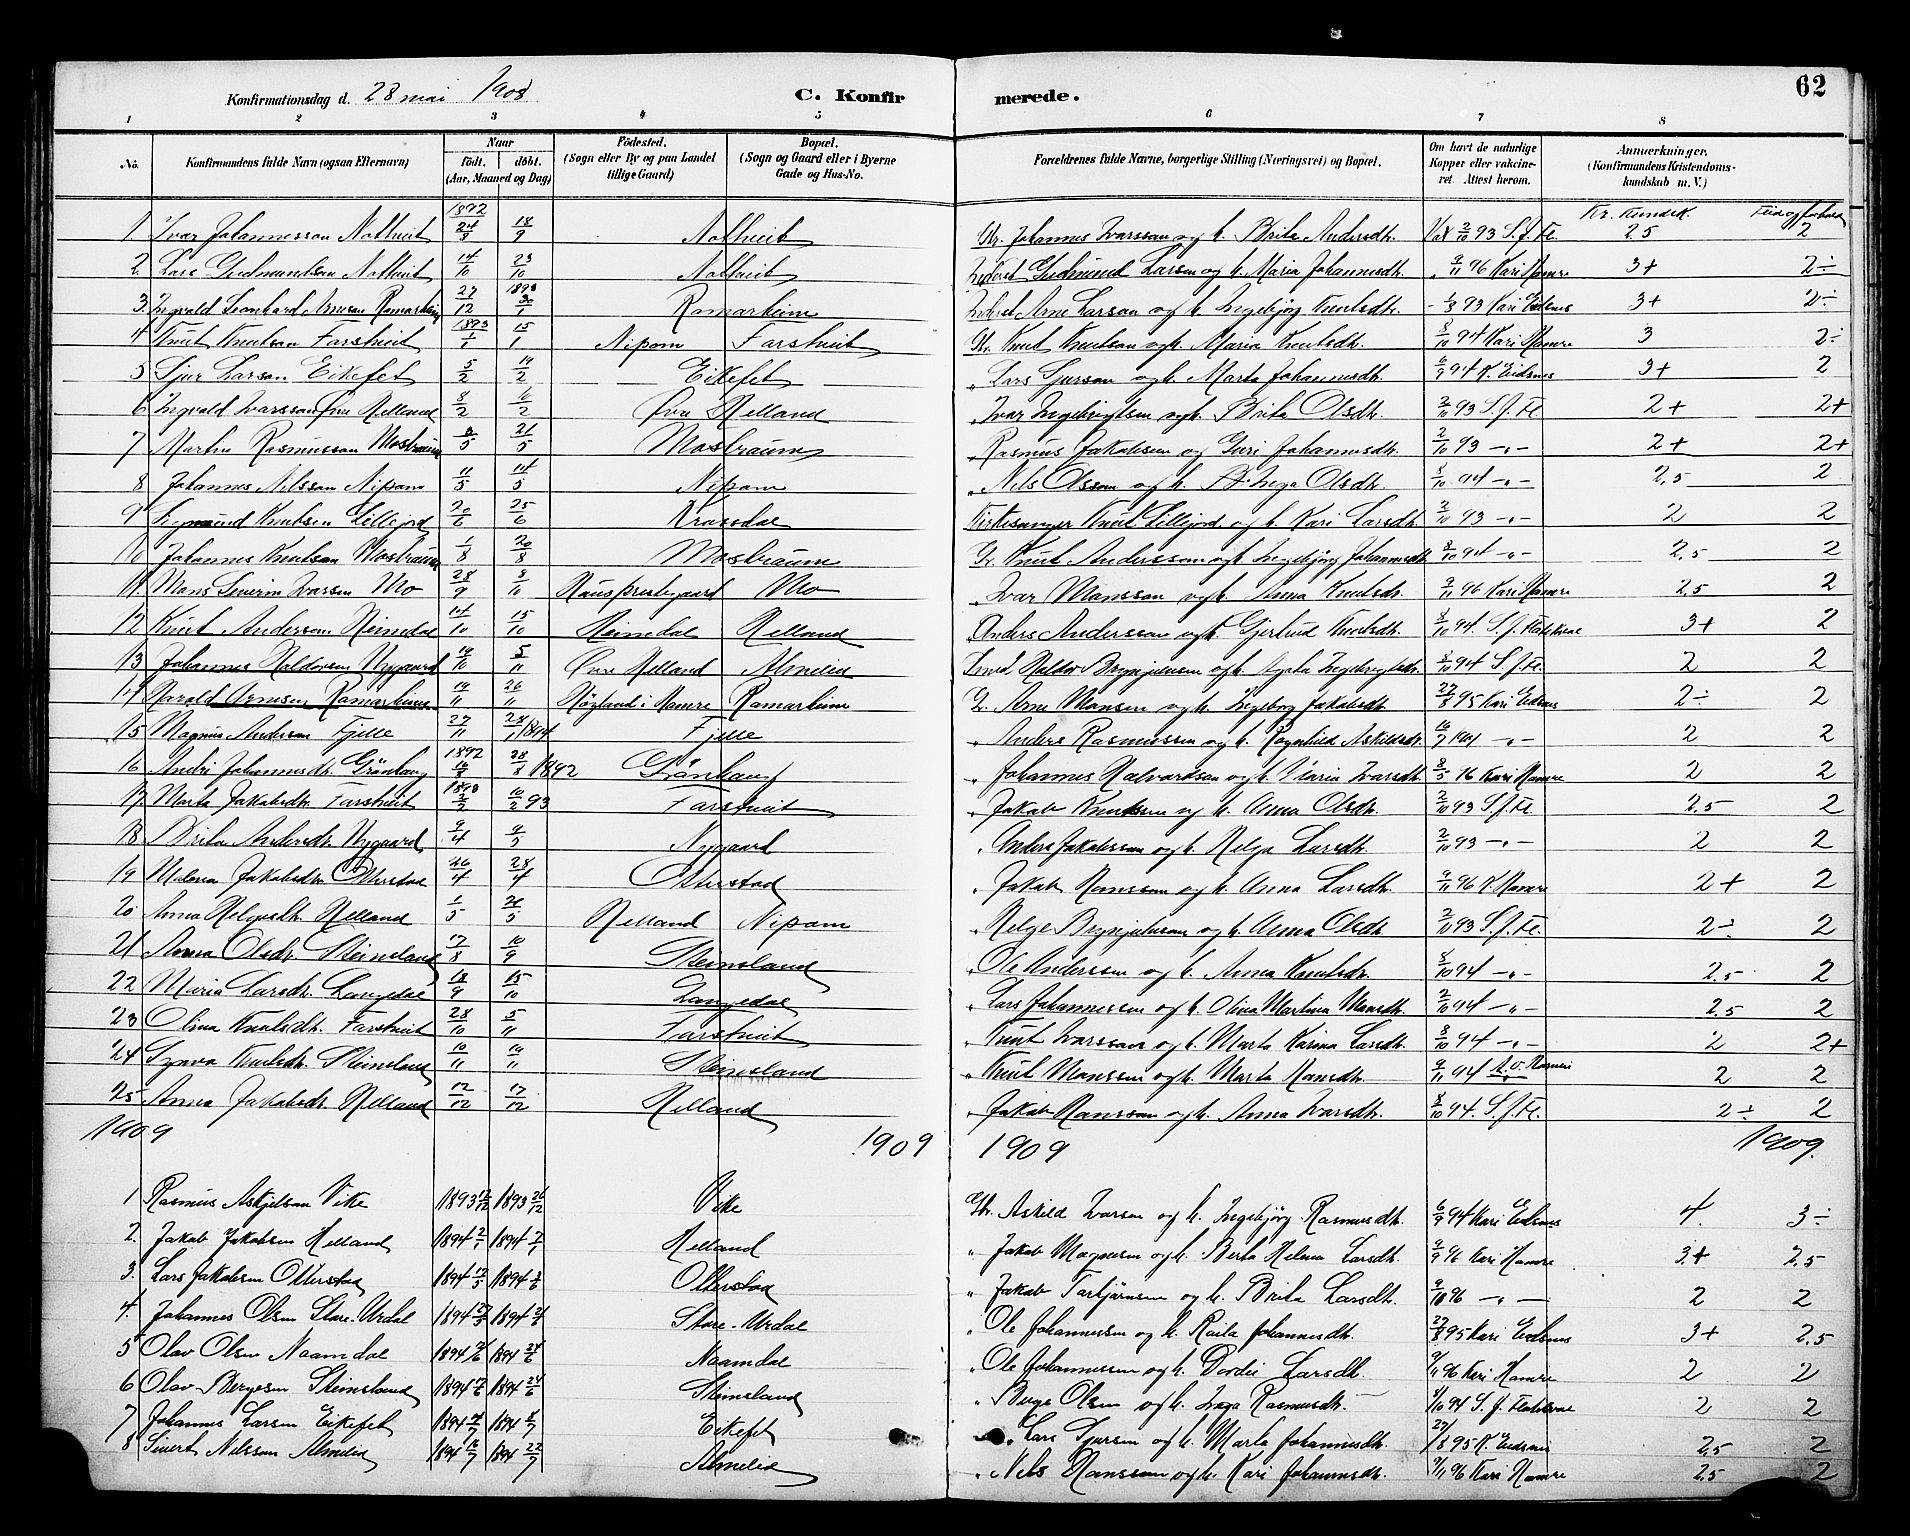 62
Konfirmationsdag d. 28 mai 1908 C. Konfirmerede.
1 2 3 4 5 6 7 8
No. Konfirmandens fulde Navn (ogsaa Efternavn) Naar födt. döbt. (Aar, Maaned og Dag) Födested. (Sogn eller By og paa Landet tillige Gaard) Bopæl. (Sogn og Gaard eller i Byerne Gade og Hus-No. Forældrenes fulde Navne, borgerlige Stilling (Næringsvei) og Bopæl. Om havt de naturlige Kopper eller vakcineret. Attest herom. Anmærkninger. (Konfirmandens Kristendomskundskab m. V.)
Kr. Kundsk.
1. Ivar Johannesson Nothveit 1892 24/8 18/9 Nothveit Gbr. Johannes Ivarsson og h. Brita Andersdtr. Vax 2/10 93 S. J. Fl. 2.5 2
2. Lars Gudmundson Nothveit 14/10 23/10 Nothveit Gudmund Larsen og h. Maria Johannesdtr. 9/11 96 Kari Hamre 3+ 2÷
3. Ingvald Leonhard Arnesen Ramarheim 27/12 1893 30/1 Ramarheim Arne Larson og h. Ingebjörg Knutsdtr. 93 Kari Eidsnes 3+ 2÷
4 Knut Knutson Farstveit 1893 1/1 15/1 Nipom Farstveit Gbr. Knut Knutson og h. Maria Knutsdtr. 8/10 94 Kari Hamre 3 2÷
5 Sjur Larson Eikefet 5/2 19/2 Eikefet " Lars Sjurson og h. Marta Johannesdtr. 6/9 94 K. Eidsnes 3+ 2
6 Ingvald Ivarsson Øvre Helland 8/2 Øvre Helland " Ivar Ingebrigtsen og h. Brita Olsdtr. 2/10 93 S. J. Fl. 2+ 2+
7 Martin Rasmusson Mostraum 21/5 Mostraum " Rasmus Jakobsen og Guri Johannesdtr. 2/10 93 -"- 2+ 2+
8 Johannes Nilsson Nipom 11/5 14/5 Nipom " Nels Olsson og h. Inga Olsdtr. 94 -"- 2,5 2
9 Sigmund Knutsen Lillejord 20/6 25/6 Krossdal Kirkesanger Knut Lillejord og h. Kari Larsdtr. 2/10 93 -"- 2 2
10 Johannes Knutson Mostraum 1/8 20/8 Mostraum G. Knut Anderssson og h. Ingebjörg Johannesdtr. 8/10 94 -"- 2,5 2
11 Mons Severin Ivarsen Mo 28/9 Haus Prestegaard Mo " Ivar Monsson og h. Anna Knutsdr. 9/11 96 Kari Hamre 2,5 2
12 Knut Anderson Heimdal 14/10 15/10 Heimdal Helland " Anders Andersson og h. Gjertrud Knutsdtr. 8/10 94. S. J. Flatekval 3+ 2
13 Johannes Haldorsen Nygaard 5/11 Øvre Helland Almelid Haldor Brynjulvsen og h. Agata Ingebrigtsdtr. 8/10 94 S. J. Fl. 2 2
14 Harald Arnesen Ramarheim 26/11 Högland i Hamre Ramarheim G. Arne Monsen og h. Ingeborg Jakobsdtr. 27/8 95 Kari Eidsnes 2÷ 2
15 Magnus Anderson Fjelle 1894 Fjelle " Anders Rasmussen og h. Ragnhild Askildsdr. 2 2
16 Andri Johannesdtr. Grönhaug 1892 28/8 1892 Grönhaug " Johannes Halvardson og h. Maria Ivarsdtr. 96 Kari Hamre 2 2
17 Marta Jakobsdtr. Farstveit 1893 93 Farstveit " Jakob Knutson og h. Anna Olsdr. 2/10 93 S. J. Fl. 2,5 2
18 Brita Andersdtr. Nygaard 9/4 9/5 Nygaard " Anders Jakobsson og h. Helga Larsdtr. 2/10 93 -"- 2 2
19 Malena Jakobsdtr. Otterstad 28/4 Otterstad " Jakob Hansson og h. Anna Larsdtr. 9/11 96 K. Hamre 2+ 2
20 Anna Helgesdtr. Helland 1/5 Helland Nipom " Helge Brynjulvson og h. Anna Olsdtr. 2/10 93 S. J. Fl. 2÷ 2
21 Anna Olsdr. Steinsland 17/8 10/9 Steinsland " Ole Andersson og h. Anna Knutsdtr. 8/10 94 -"- 2,5 2
22 Maria Larsdtr. Langedal 18/9 15/10 Langedal " Lars Johannesson og h. Olina Martina Monsdtr. 94 -"- 2,5 2
23 Olina Knutsdtr. Farstveit 28/10 5/11 Farstveit " Knut Ivarsson og h. Marta Karina Larsdtr. 8/10 94 -"- 2 2+
24 Synva Knutsdtr. Steinsland 10/11 19/11 Steinsland " Knut Monsson og h. Marta Hansdtr. 9/11 94 2 2
25 Anna Jakobsdtr. Helland 12/12 17/12 Helland " Jakob Hansson og h. Anna Ivarsdtr. 8/10 94. S. J. Fl. 2÷ 2
1909 1909 1909 1909.
1 Rasmus Askjelson Vike 1893 1893 26/12 Vike Gbr. Askild Ivarson og h. Ingebjörg Rasmusdtr. 6/9 94 Kari Eidsnes 4. 3÷
2. Jakob Jakobsen Helland 1894 2/1 1894 7/1 Helland " Jakob Magnusen og h. Berta Helena Larsdtr. 9/9 96 Kari Hamre 3+ 2,5
3. Lars Jakobsen Otterstad 1894 1894 Otterstad " Jakob Torbjörnsen og h. Brita Larsdtr. 96 -"- 2 2
4. Johannes Olsen Store-Urdal 1894 1894 Store-Urdal " Ole Johannessen og h. Raila Johannesdtr. 27/8 95 Kari Eidsnes 3+ 2,5
5 Olav Olsen Naamdal 1894 1894 24/6 Naamdal " Ole Johannessen og h. Dordei Larsdtr. 9/11 96 Kari Hamre 2 2
6 Olav Bergesen Steinsland 1894 1894 24/6 Steinsland " Berge Olsen og h. Inga Rasmusdtr. 94 S. J. Flatekval 2 2
7 Johannes Larsen Eikefet 1894 1894 Eikefet " Lars Sjursen og h. Marta Johannesdtr. 27/8 95 K. Eidsnes 2,5 2
8 Sivert Nilsson Almelid 1894 1894 22/7 Almelid " Nels Hansson og h. Kari Johannesdtr. 9/11 96 Kari Hamre 2,5 2